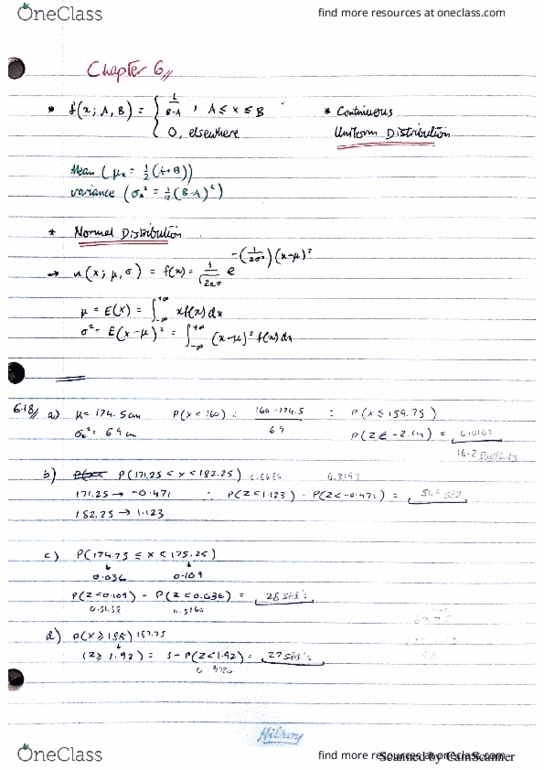 OneClass find more resources at oneclass.com
Chapter 6
* f(x; A, B) = { 1/B-A , A ≤ x ≤ B * Continuous
0, elsewhere Uniform Distribution
Mean (μx = 1/2 (A+B))
variance (σx² = 1/12 (B-A)²)
* Normal Distribution
→ n(x; μ, σ) = f(x) = e^-(1/2σ²)(x-μ)²
μ = E(x) = ∫ -∞ +∞ x f(x) dx
σ² = E(x-μ)² = ∫ -∞ +∞ (x-μ)² f(x) dx
6.18 a) μ = 174.5 cm P(x < 160) : 160-174.5 / 6.9 : P(x ≤ 159.75)
σx² = 6.9 cm
b) P(171.25 ≤ x < 182.25)
171.25 → -0.471 ∴ P(Z<1.123) - P(Z<-0.471) =
182.25 → 1.123
c) P(174.75 ≤ x < 175.25)
0.036 0.109
P(Z<0.109) - P(Z<0.036) = 28 std's
d) P(x ≥ 188) 187.75
(Z ≥ 1.92) = 1 - P(Z<1.92) = 27 std's
Hilroy
OneClass find more resources at oneclass.com
Scanned by CamScanner